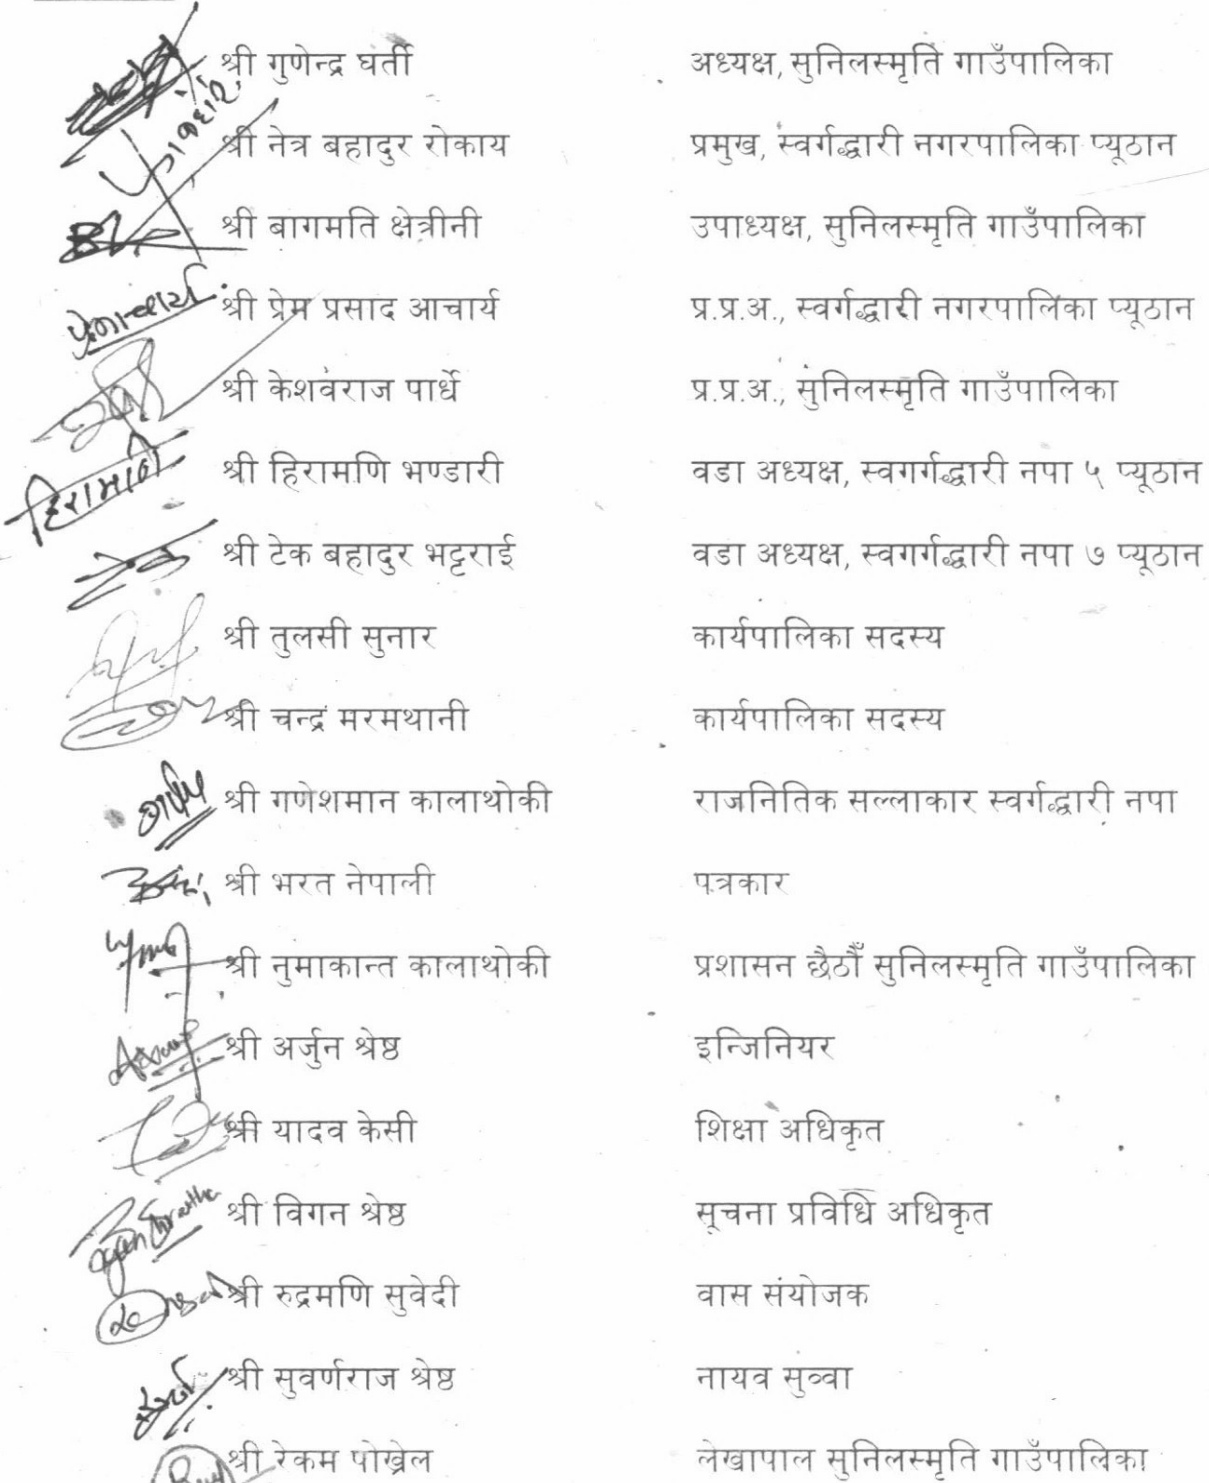 श्री गुणेन्द्र घर्ती अध्यक्ष, सुनिलस्मृति गाउँपालिका
श्री नेत्र बहादुर रोकाय प्रमुख, स्वर्गद्धारी नगरपालिका प्यूठान
श्री बागमति क्षेत्रीनी उपाध्यक्ष, सुनिलस्मृति गाउँपालिका
प्रेमाचार्य श्री प्रेम प्रसाद आचार्य प्र.प्र.अ., स्वर्गद्धारी नगरपालिका प्यूठान
श्री केशवराज पार्धे प्र.प्र.अ., सुनिलस्मृति गाउँपालिका
हिरामणि श्री हिरामणि भण्डारी वडा अध्यक्ष, स्वगर्गद्धारी नपा ५ प्यूठान
टेक श्री टेक बहादुर भट्टराई वडा अध्यक्ष, स्वगर्गद्धारी नपा ७ प्यूठान
श्री तुलसी सुनार कार्यपालिका सदस्य
श्री चन्द्र मरमथानी कार्यपालिका सदस्य
श्री गणेशमान कालाथोकी राजनितिक सल्लाकार स्वर्गद्धारी नपा
श्री भरत नेपाली पत्रकार
श्री नुमाकान्त कालाथोकी प्रशासन छैठौँ सुनिलस्मृति गाउँपालिका
श्री अर्जुन श्रेष्ठ इन्जिनियर
श्री यादव केसी शिक्षा अधिकृत
श्री विगन श्रेष्ठ सूचना प्रविधि अधिकृत
श्री रुद्रमणि सुवेदी वास संयोजक
श्री सुवर्णराज श्रेष्ठ नायव सुव्वा
श्री रेकम पोख्रेल लेखापाल सुनिलस्मृति गाउँपालिका